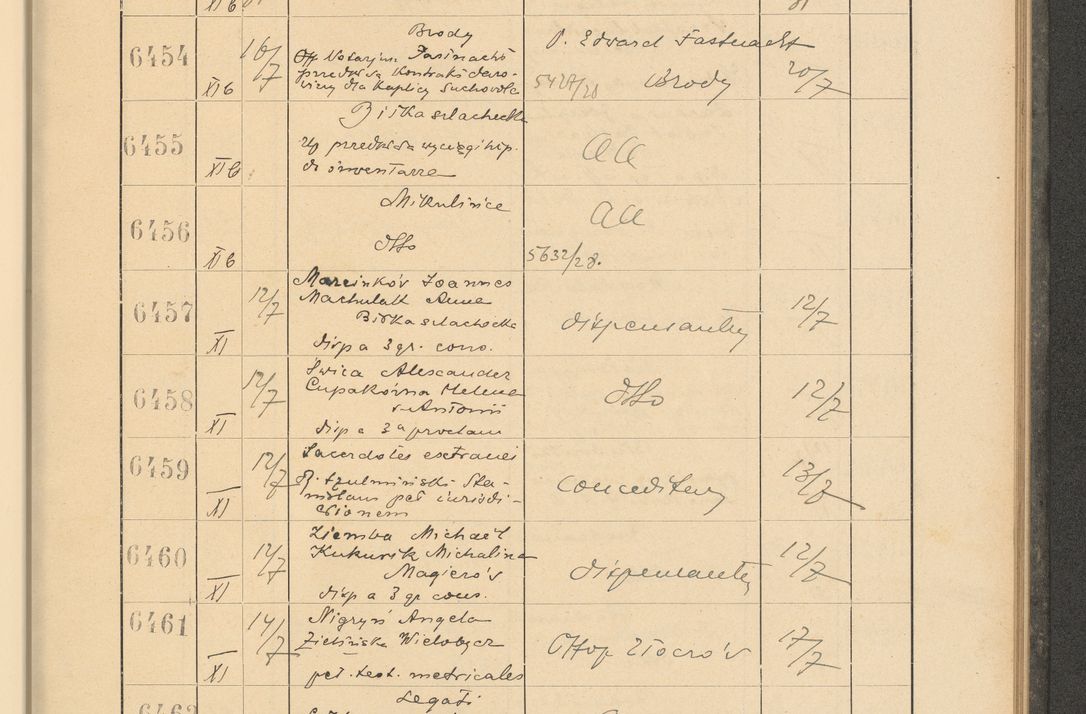 6454 XIb 16/7 Brody
Off Notarjus
przedkł. Kontrakt daro-
wizny dla Kaplicy Suchowola
P. Edward Fastnacht
5427/28 Brody 20/7
6455 XIb Biłka szlachecka
Up przedkłada wyciągi hip.
do inwentarza
aa
6456 XIb Mikulińce
dtto
aa
5632/28.
6457 XI 12/7 Marcinków Joannes
Machulak Anna
Biłka szlachecka
disp a 3 gr. cons.
dispensantur 12/7
6458 XI 12/7 Świca Alexander
Cupakówna Helena
v. Antonii
disp a 3a proclam
dtto 12/7
6459 XI 12/7 Sacerdotes extranei
Sta-
nislaus pet iurisdi-
ctionem
conceditur 13/7
6460 XI 12/7 Ziemba Michaël
Kukurik Michalina
Magierów
disp a 3 gr cons.
dispensantur 12/7
6461 XI 14/7 Nigryń Angela
Zielińska
pet. test. metricales
Offop Złoczów 17/7
6462 Legati